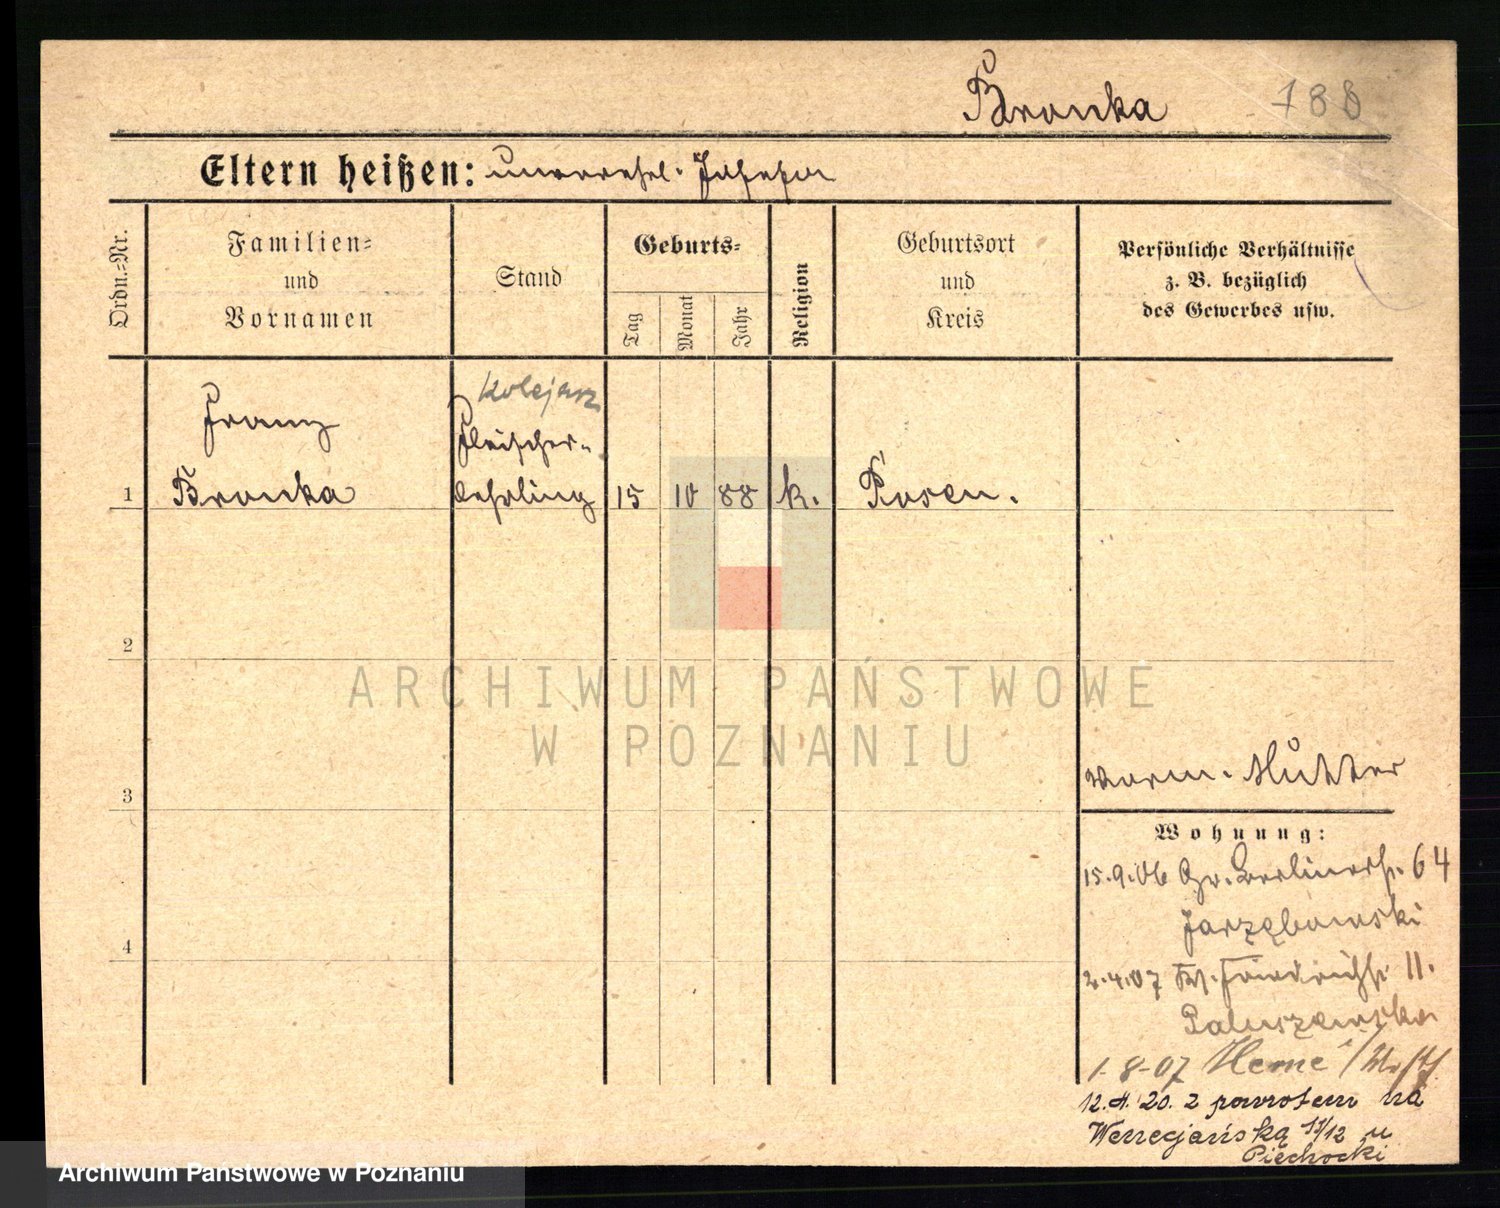 Bronka 188
Eltern heißen: unverehel. Josefa
Ordn.=Nr.
Familien=
und
Vornamen
Stand
Geburts=
Tag
Monat
Jahr
Religion
Geburtsort
und
Kreis
Persönliche Verhältnisse
z. B. bezüglich
des Gewerbes usw.
kolejarz
Franz
Fleischer-
1 Bronka lehrling 15 10 88 k. Posen.
2
ARCHIWUM PAŃSTWOWE
W POZNANIU
3
vorm. Mutter
Wohnung:
15.9.06 Gr. Berlinerstr. 64
Jarzębowski
4
2.4.07 Friedrichstr. 11.
Paluszewska
1-8-07 Herne i/Westf.
12.4.20. z powrotem na
Wenecjańską 11/12 u
Piechocki
Archiwum Państwowe w Poznaniu